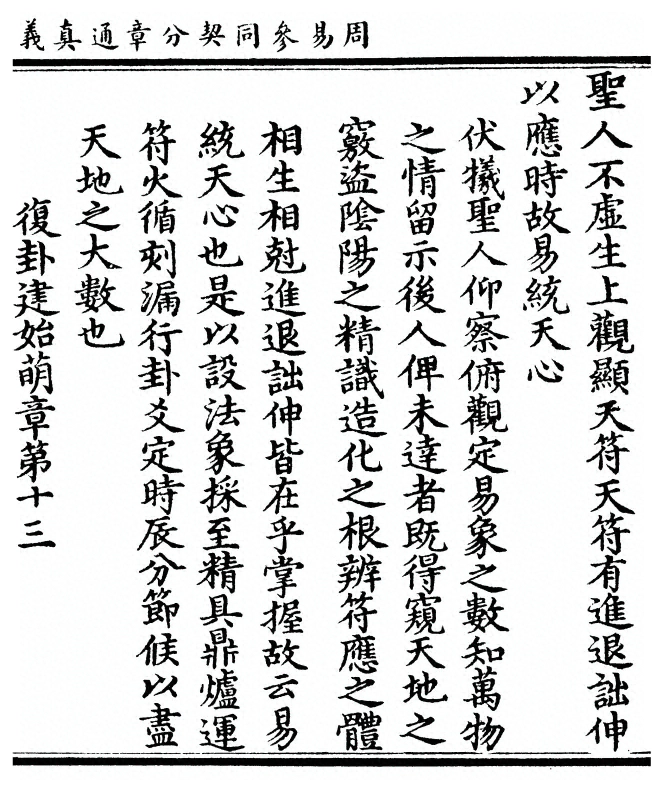 周易參同契分章通真義
聖人不虛生上觀顯天符天符有進退詘伸
以應時故易統天心
伏犧聖人仰察俯觀定易象之數知萬物
之情留示後人俾未達者既得窺天地之
竅盜陰陽之精識造化之根辨符應之體
相生相尅進退詘伸皆在乎掌握故云易
統天心也是以設法象採至精具鼎爐運
符火循刻漏行卦爻定時辰分節候以盡
天地之大數也
復卦建始萌章第十三